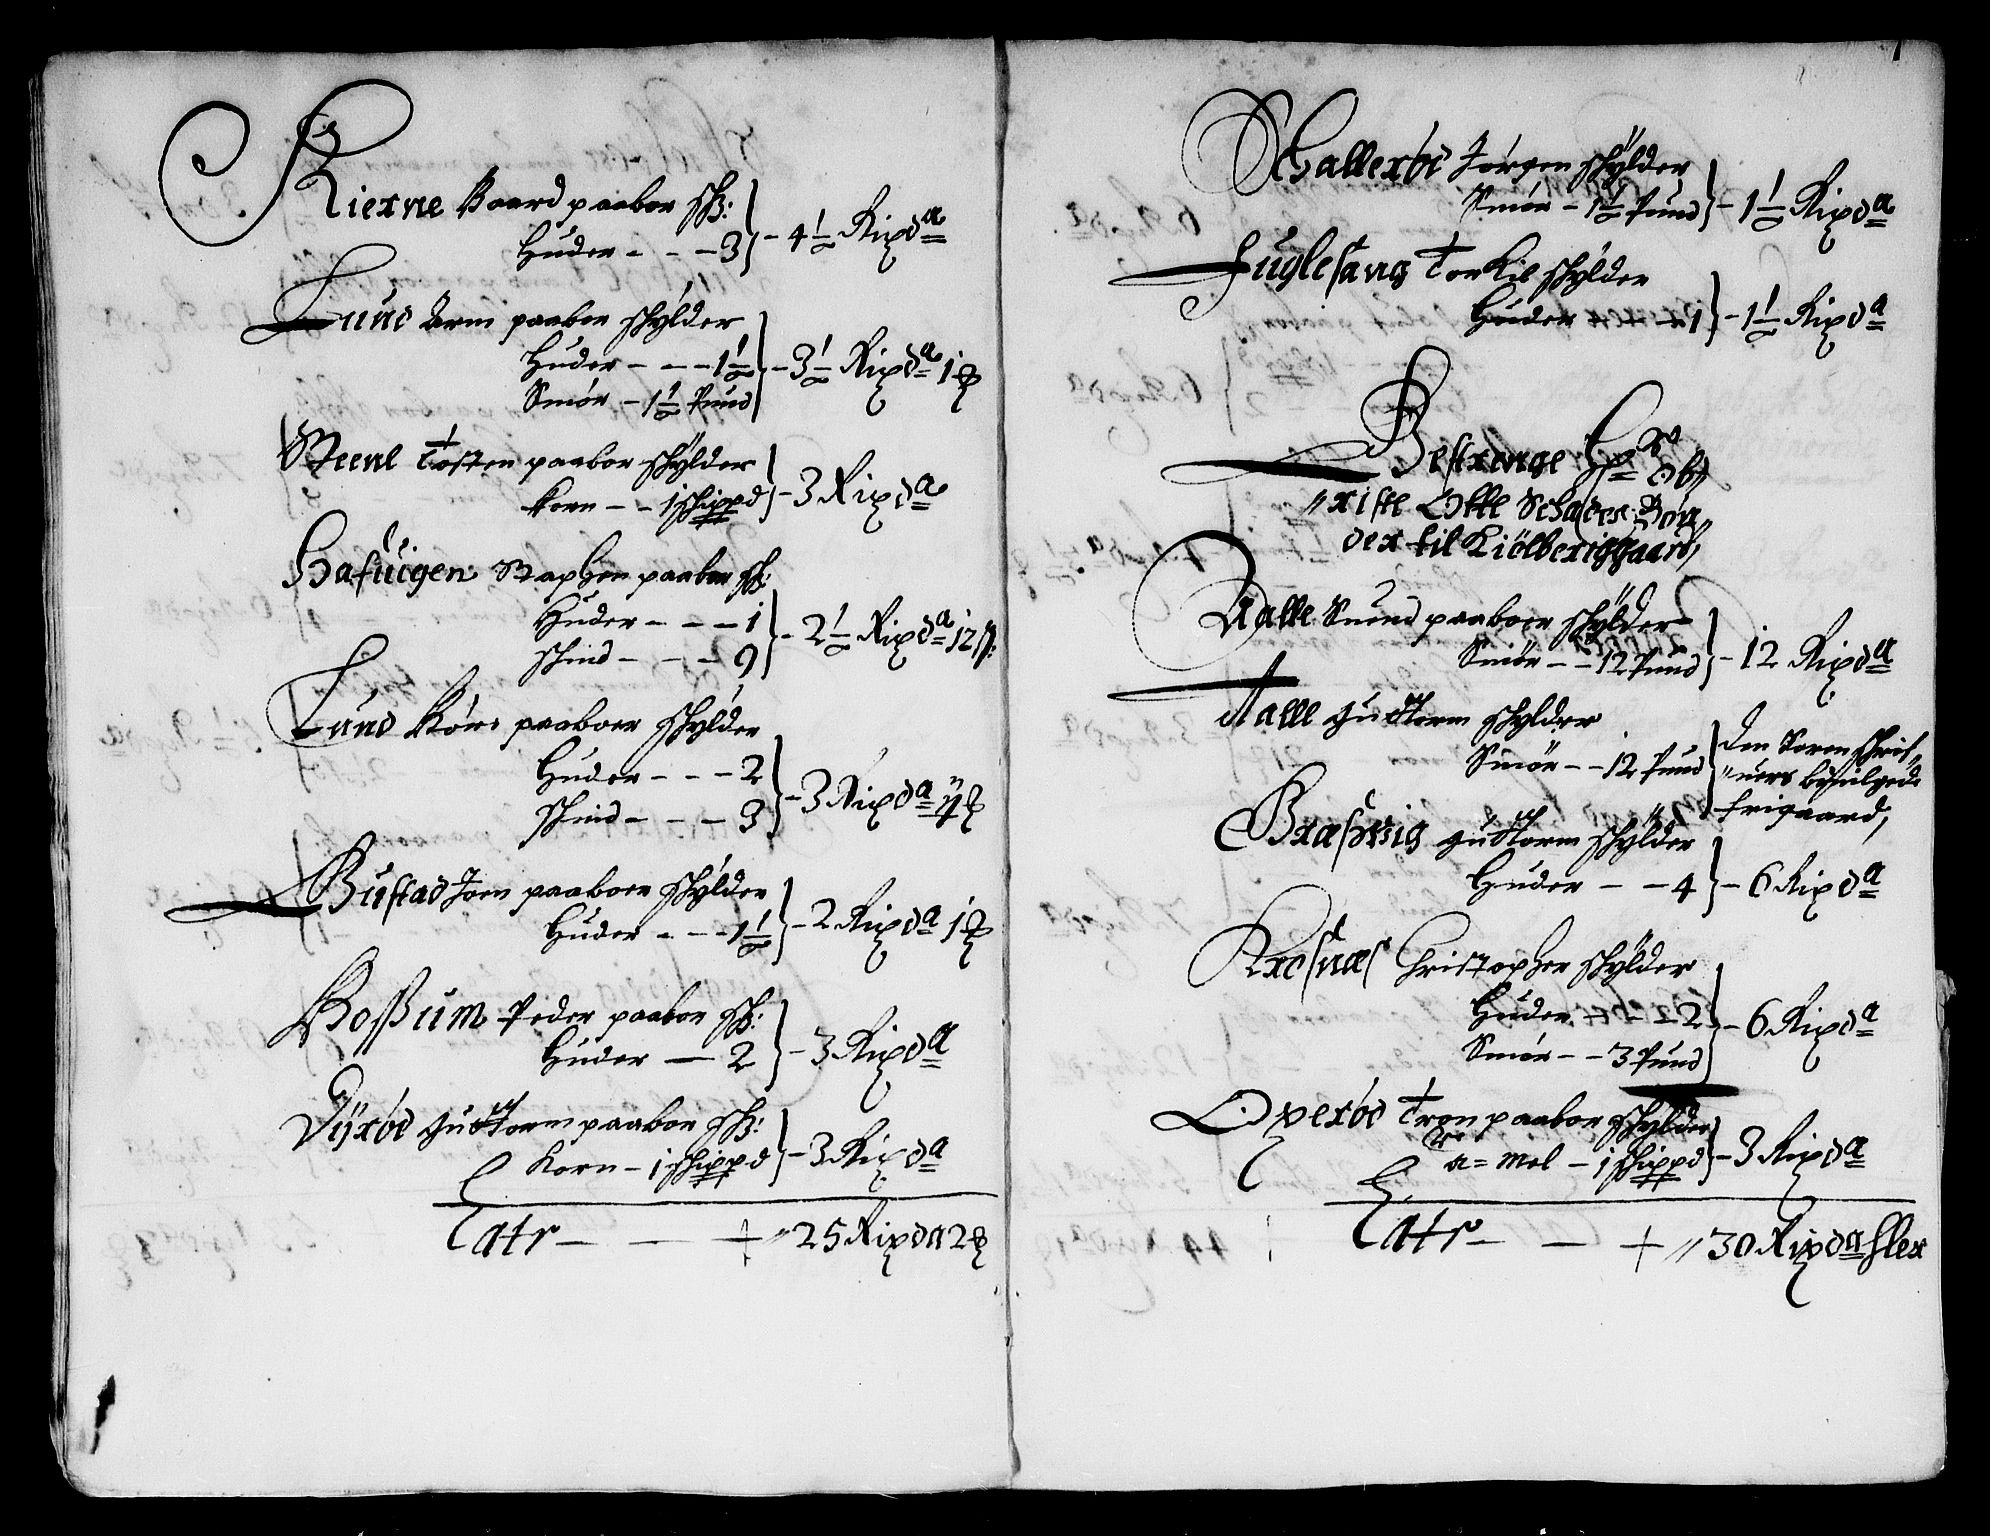 Kierne Baard paabor sk:
Huder - - - 3 - 4½ Rixda
Lund Arni paabor schylder
Huder - - - 1½
Smör - 1½ Pund - 3½ Rixda 1
Steenl Tosten paabor schylder
Korn - - 1 schippd - 3 Rixda
Staphen paabor sk:
Huder - - - 1
schind - - - 9 - 2½ Rixda 12 s:
Lund Kören paaboer schylder
Huder - - - 2
schind - - - 3 - 3 Rixda
Bustad Joen paaboer schylder
Huder - - - 1½ - 2 Rixda 1
Roßum Peder paabor sk:
Huder - 2 - 3 Rixda
Dÿröd Gudttorm paabor sk:
Korn - 1 schippd - 3 Rixda
Latr - - + 25 Rixda 2
Schalleröd Jörgen schylder
Smör - 1½ Pund - 1½ Rixda
Fuglesang Torkil schylder
Huder - - - 1 - 1½ Rixda
Bestrenge Hr Ob
riste Otte Schades Bön
der til Kiölbergggaard,
Aalle Suend paaboer schylder
Smör - - 12 Pund - 12 Rixda
Aalle Gudttorm schylder
Smör - - 12 Pund
Den Soren schrif
uers beuilgede
frigaard,
Gudttorm schylder
Huder - - 4 - 6 Rixda
Krosnæs Christopher schylder
Huder - - - 2
Smör - - 3 Pund - 6 Rixda
Oxeröd Tron paabor schylder
mel - 1 schippd - 3 Rixda
Latr - - + 30 Rixda